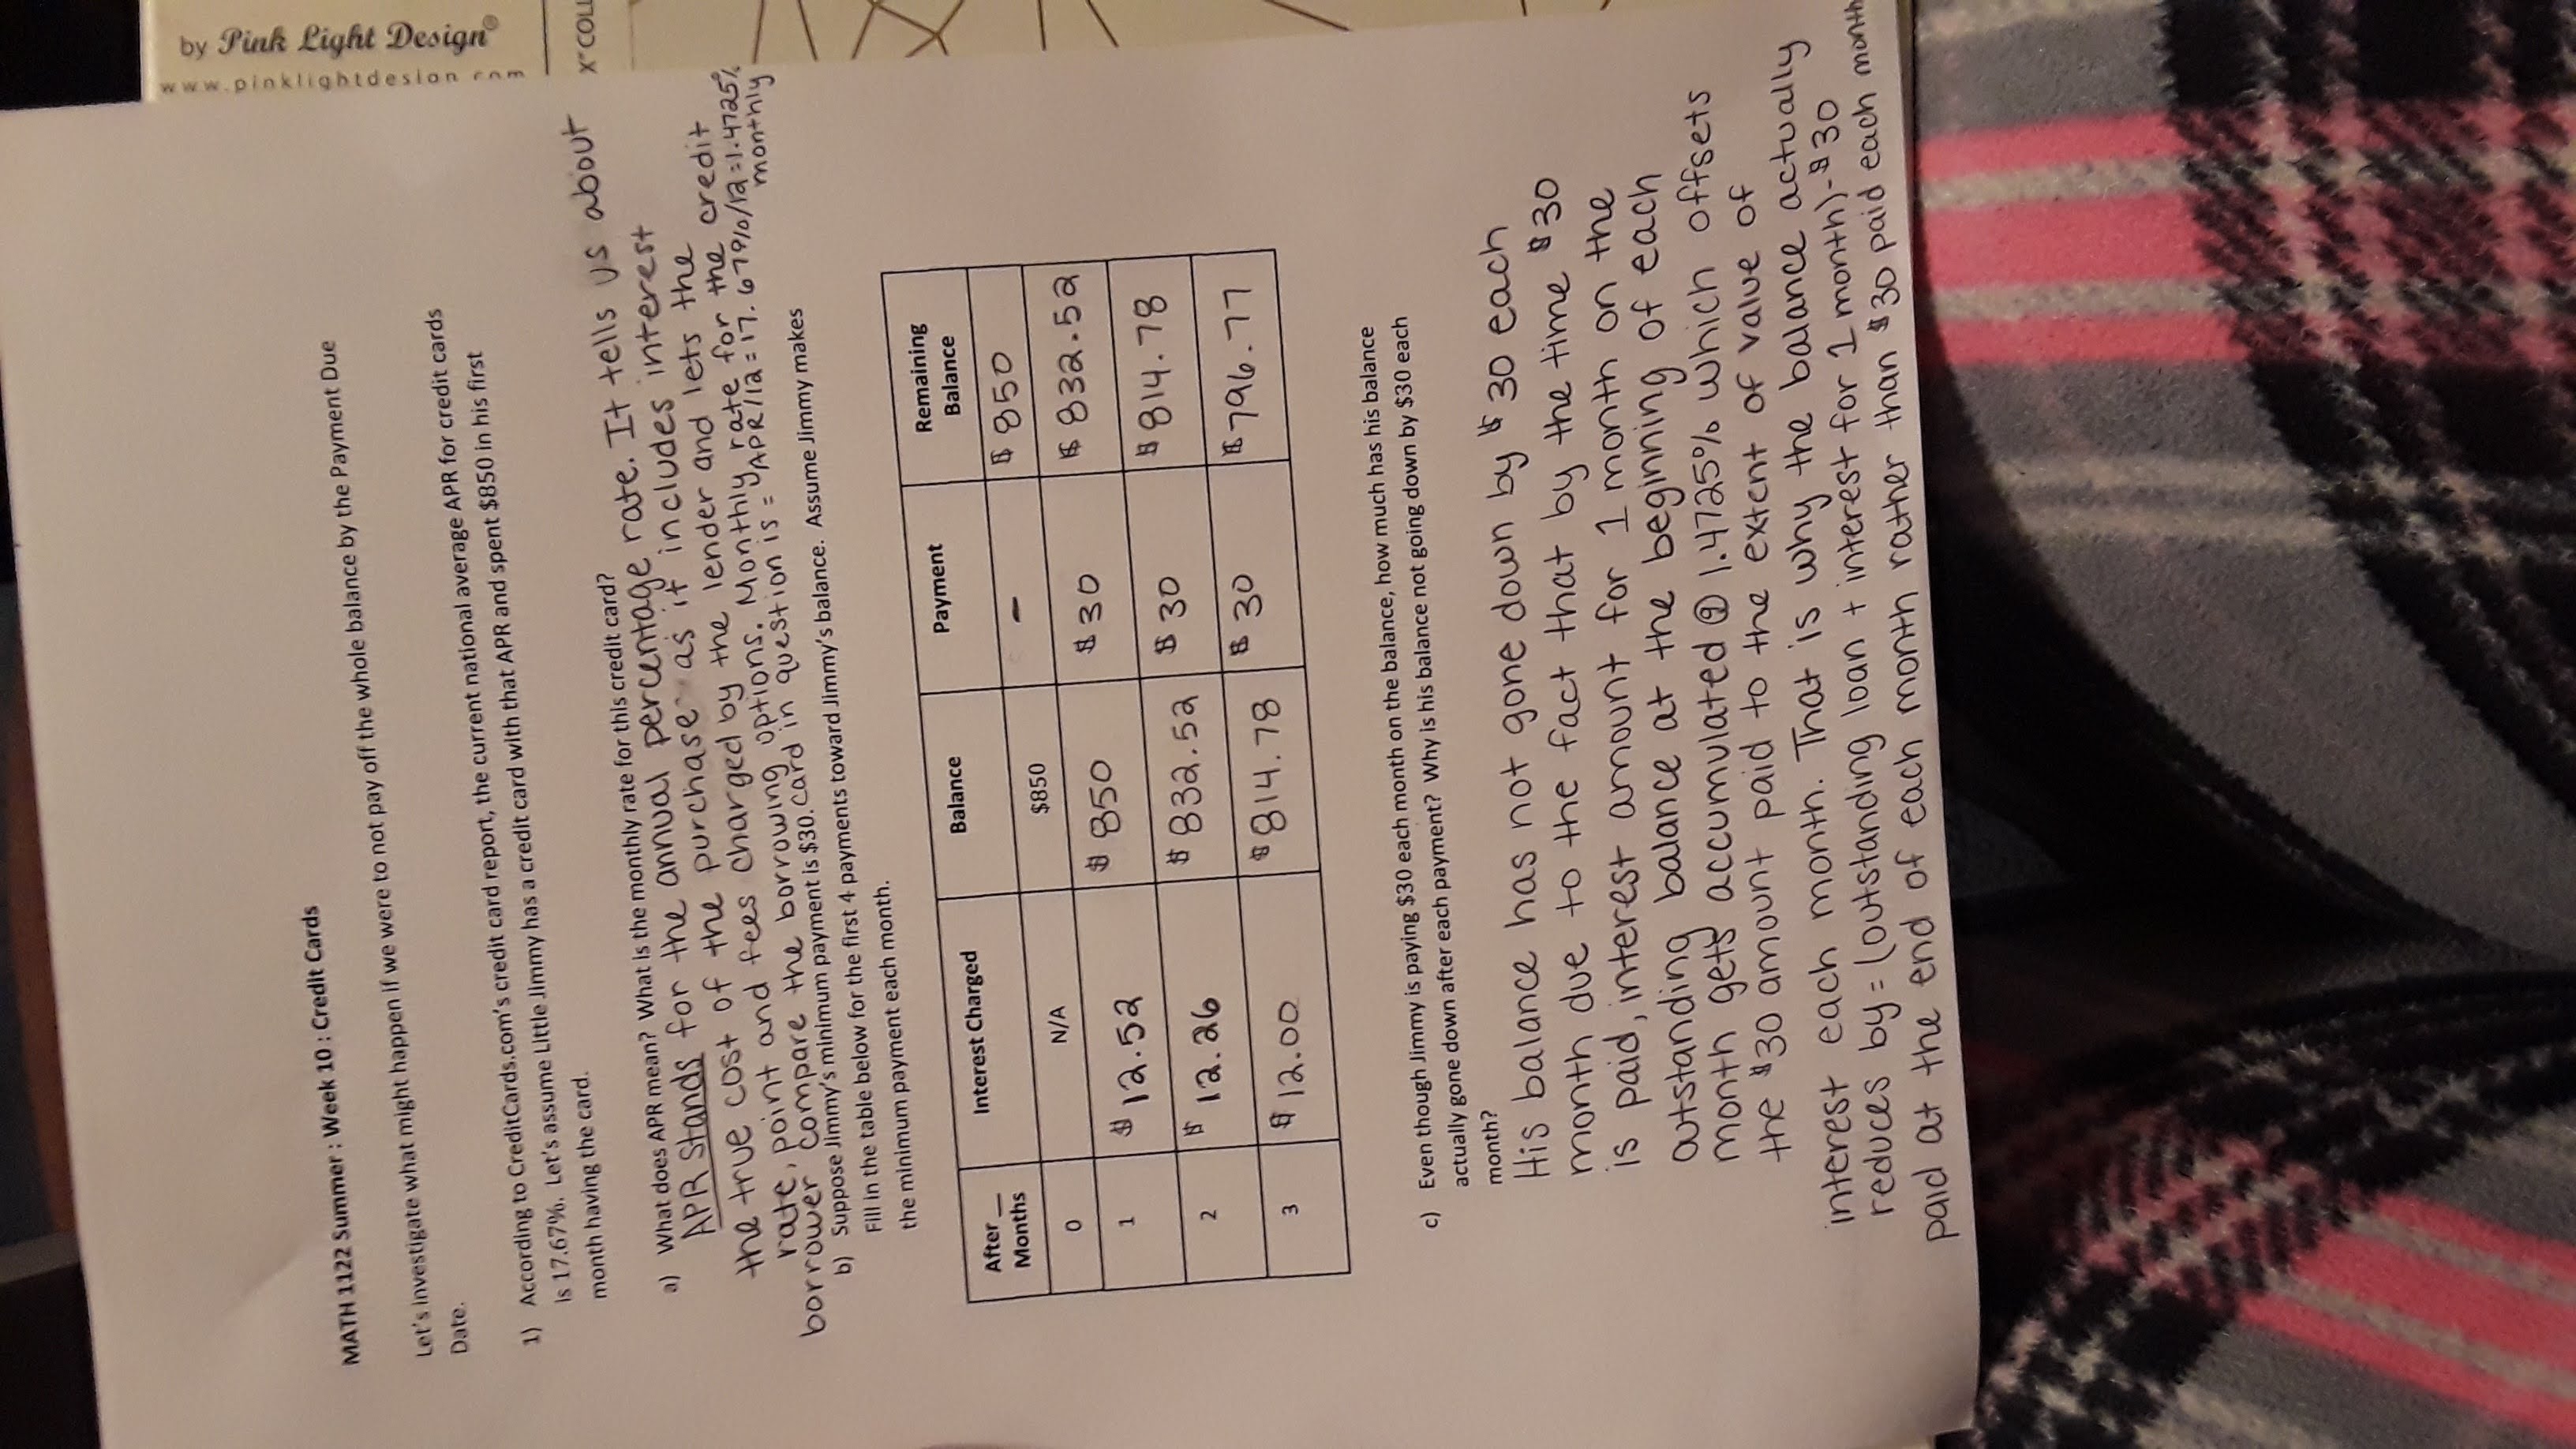 by Pink Light Design®
www.pinklightdesign.com
MATH 1122 Summer : Week 10 : Credit Cards
Let's investigate what might happen if we were to not pay off the whole balance by the Payment Due
Date.
1) According to CreditCards.com's credit card report, the current national average APR for credit cards
is 17.67%. Let's assume Little Jimmy has a credit card with that APR and spent $850 in his first
month having the card.
a) What does APR mean? What is the monthly rate for this credit card?
APR Stands for the annual percentage rate. It tells us about
the true cost of the purchase as it includes interest
rate, point and fees charged by the lender and lets the
borrower compare the borrowing options. Monthly rate for the credit
card in question is = APR/12 = 17.67%/12 = 1.4725%
monthly
b) Suppose Jimmy's minimum payment is $30.
Fill in the table below for the first 4 payments toward Jimmy's balance. Assume Jimmy makes
the minimum payment each month.
After __ Months Interest Charged Balance Payment Remaining Balance
0 N/A $850 – $850
1 $12.52 $850 $30 $832.52
2 $12.26 $832.52 $30 $814.78
3 $12.00 $814.78 $30 $796.77
c) Even though Jimmy is paying $30 each month on the balance, how much has his balance
actually gone down after each payment? Why is his balance not going down by $30 each
month?
His balance has not gone down by $30 each
month due to the fact that by the time $30
is paid, interest amount for 1 month on the
outstanding balance at the beginning of each
month gets accumulated @ 1.4725% which offsets
the $30 amount paid to the extent of value of
interest each month. That is why the balance actually
reduces by = (outstanding loan + interest for 1 month) - $30
paid at the end of each month rather than $30 paid each month